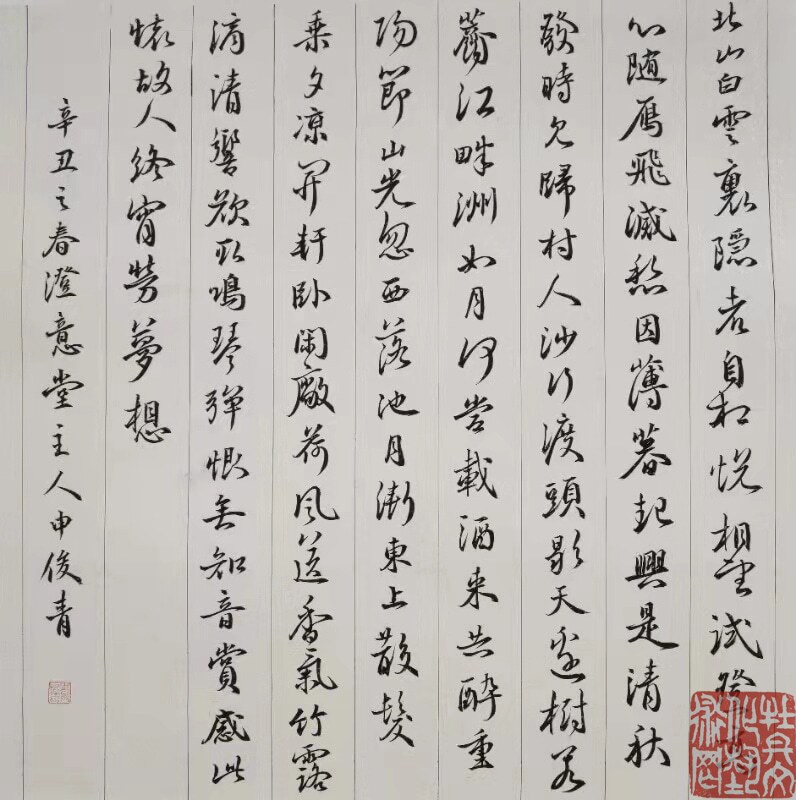 北山白雲裏隱者自怡悅相望試登
心随鴈飛滅愁因薄暮起興是清秋
發時見歸村人沙行渡頭歇天邊樹若
薺江畔洲如月何當載酒来共醉重
陽節山光忽西落池月漸東上散髮
乘夕凉開軒卧閑敞荷風送香氣竹露
滴清響欲取鳴琴彈恨無知音賞感此
懷故人終宵勞夢想
辛丑之春澄意堂主人申俊青